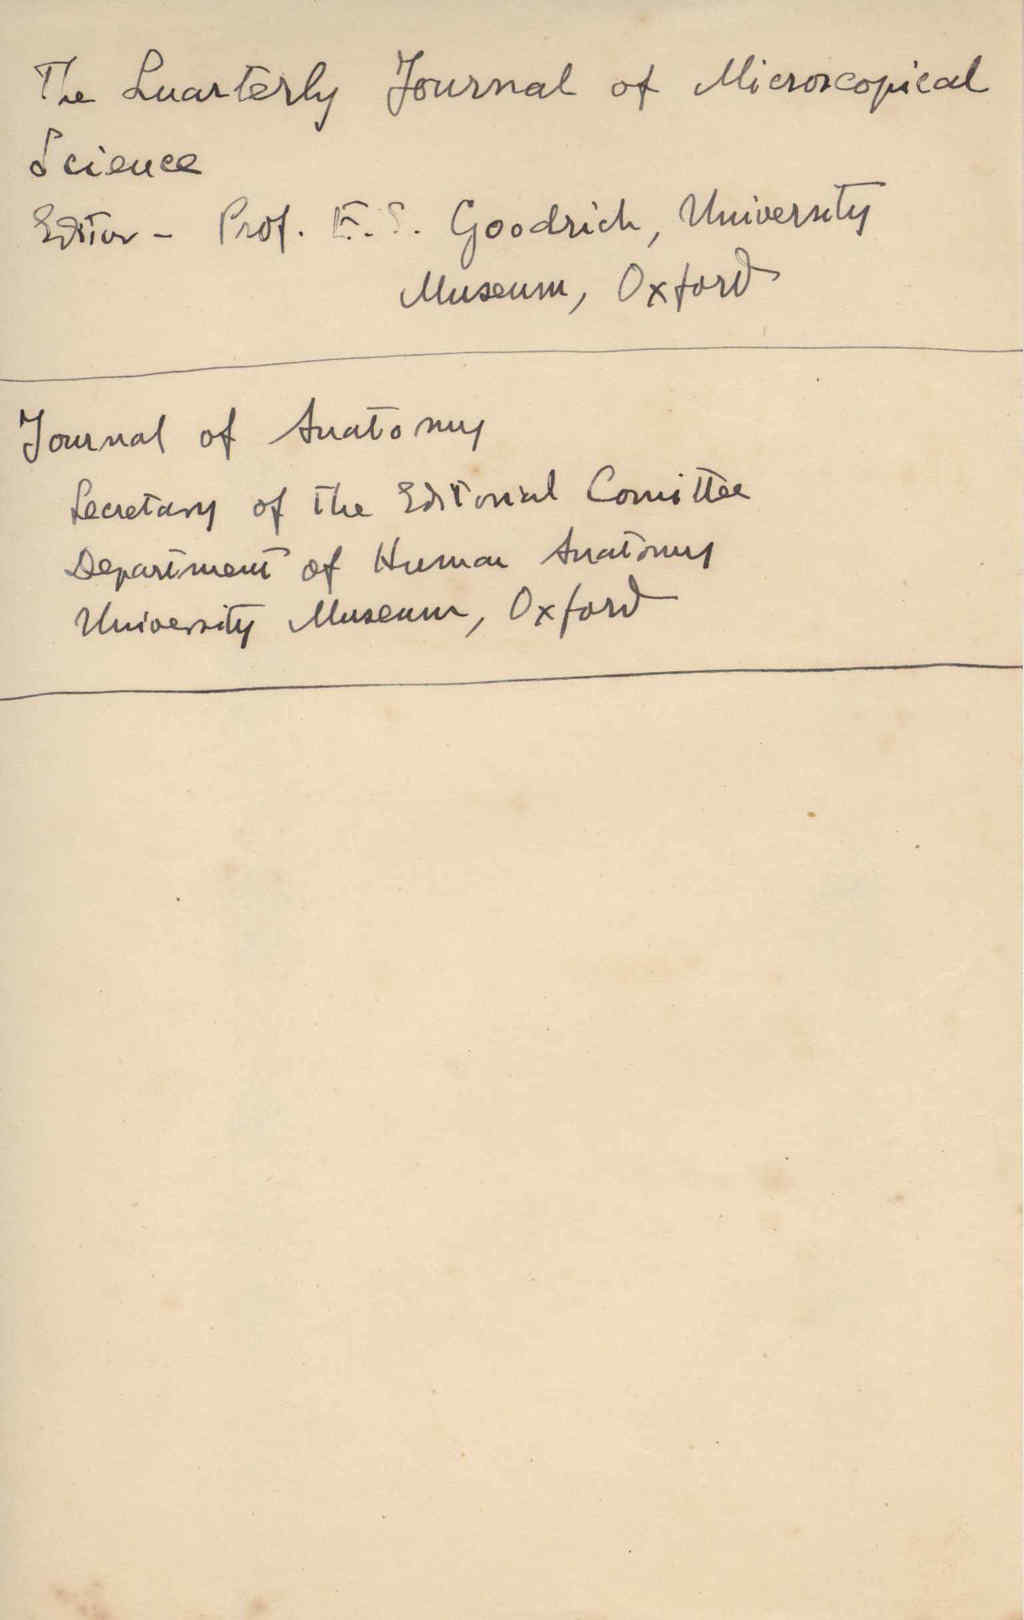 The Quarterly Journal of Microscopical
Science
Editor - Prof. E. S. Goodrich, University
Museum, Oxford
Journal of Anatomy
Secretary of the Editorial Comittee
Department of Human Anatomy
University Museum, Oxford